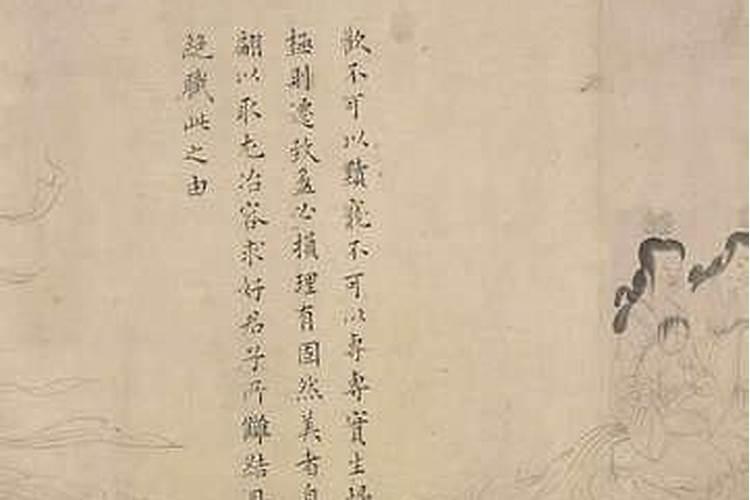 歡不可以黷寵不可以專專實生
極則遷致盈必損理有固然美者自
翩以取尤冶容求好君子所讎結
絕職此之由